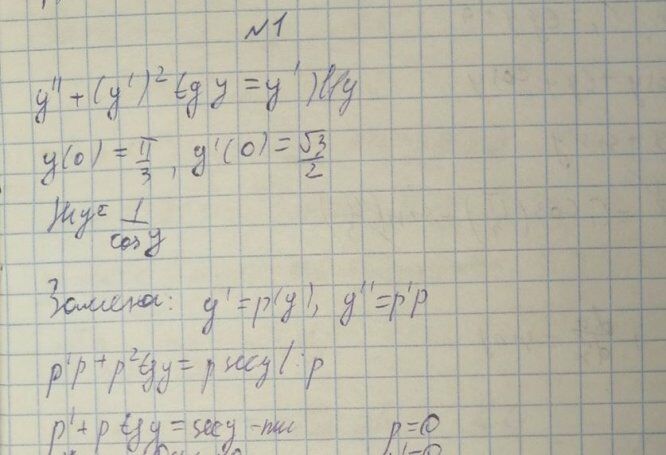 №1
y'' + (y')² tg y = y' sec y
y(0) = π/3, y'(0) = √3/2
sec y = 1/cos y
Замена: y' = p(y), y'' = p'p
p'p + p² tg y = p sec y | : p
p' + p tg y = sec y p = 0